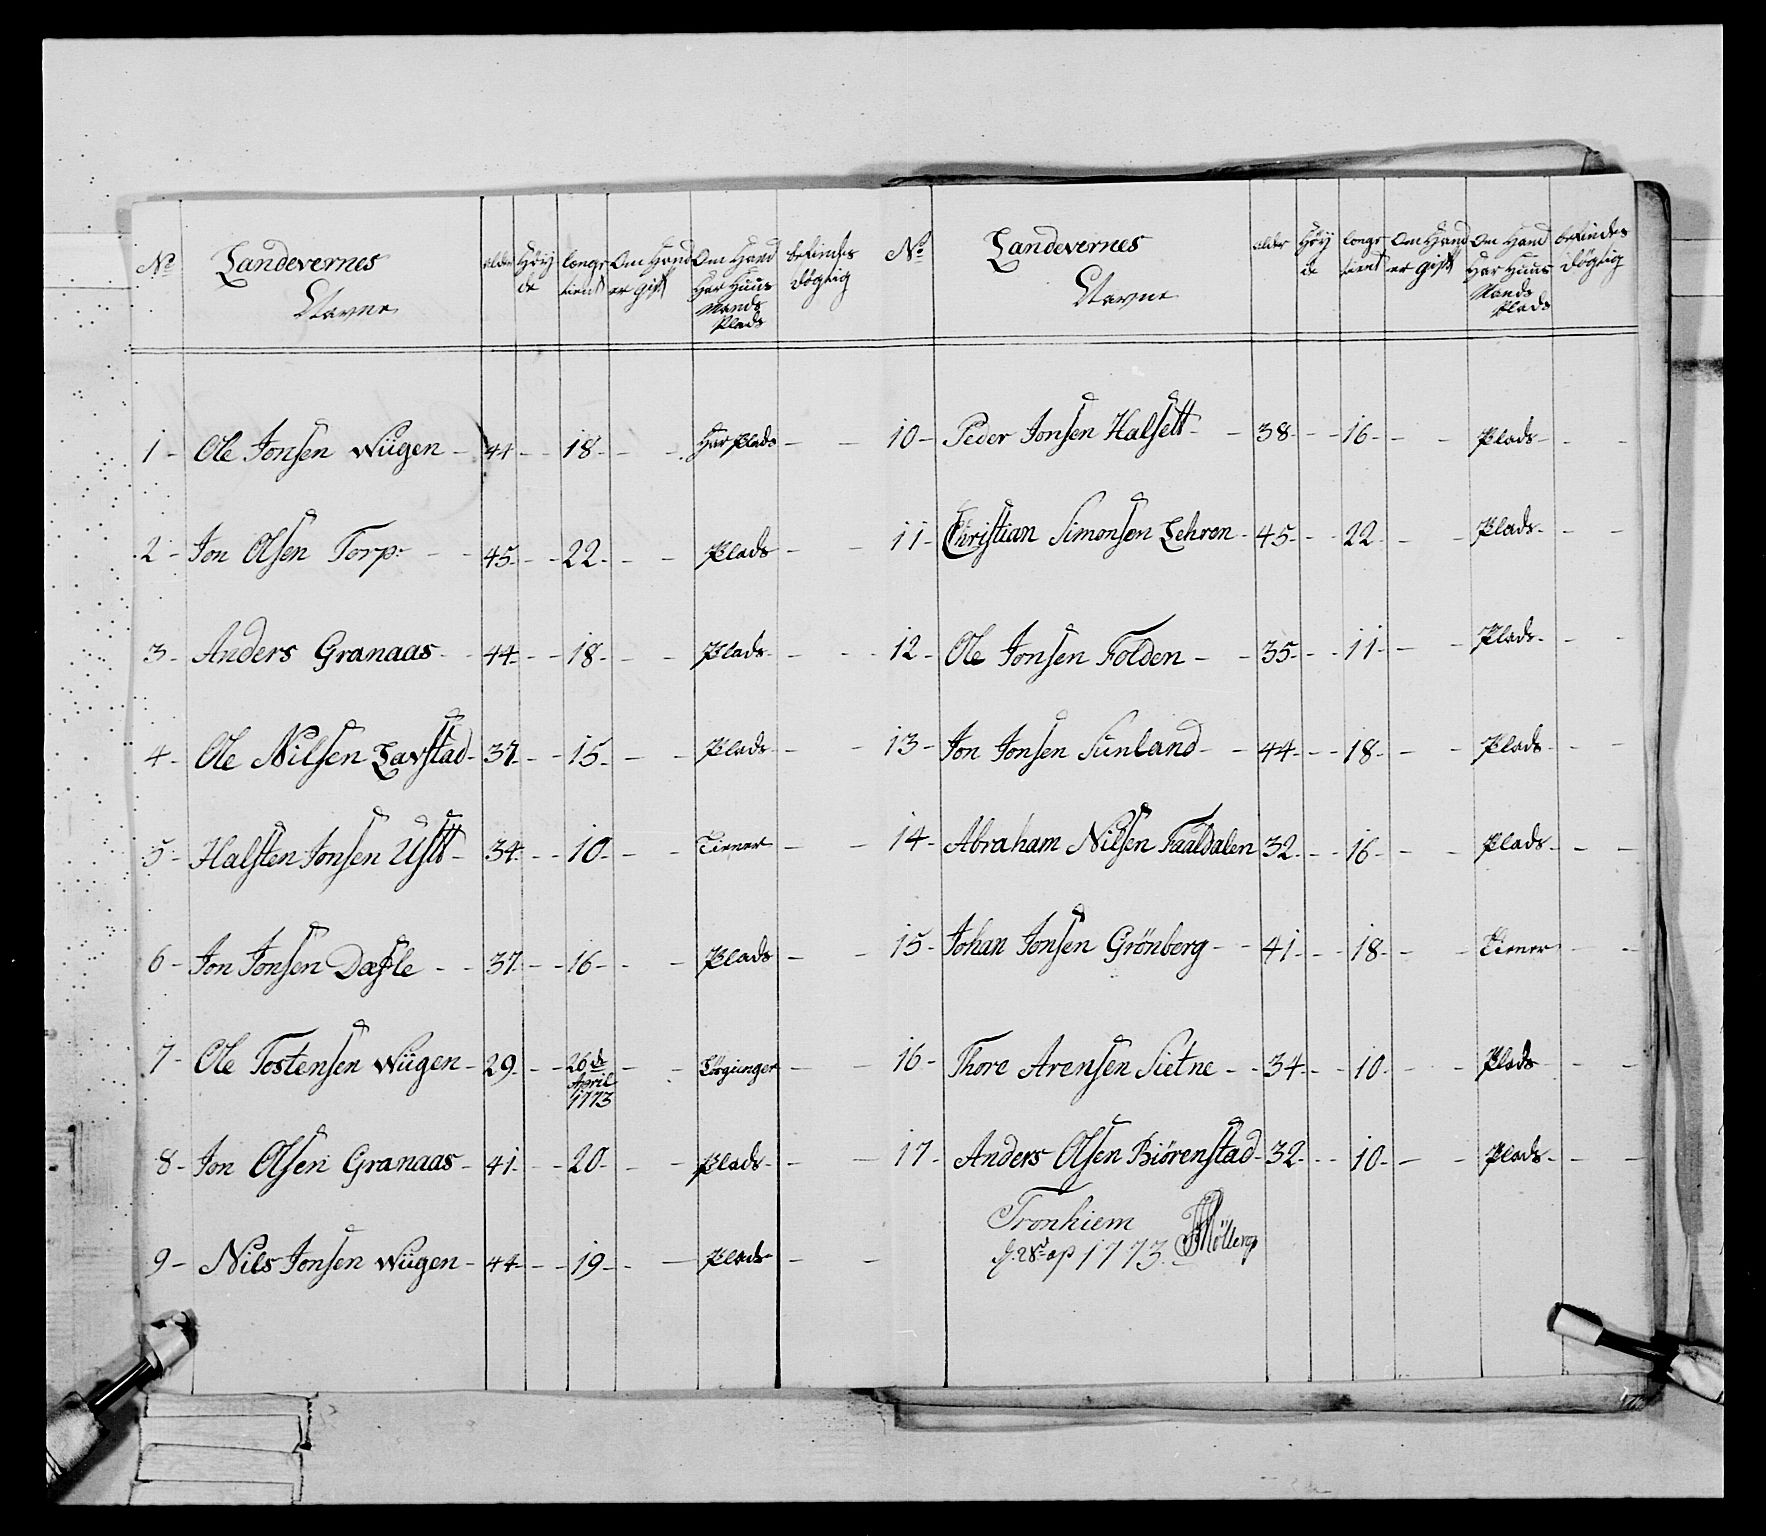 No Landevernes Navne alder Høyde længe tient Om Hand er gift Om Hand Har Huus Mands Plads befindes døgtig
1 - Ole Jonsen Wiigen - 44 - - 18 - - - Har Plads - -
2 - Jon Olsen Torp: - - 45 - - 22 - - - Plads - -
3 - Anders Granaas - - 44 - - 18 - - - Plads - -
4 - Ole Nilsen Lavstad - 37 - - 15 - - - Plads - -
5 - Halsten Jonsen Ustt - 34 - - 10 - - - Tiener - -
6 - Jon Jonsen Dæhle - - 37 - - 16 - - - Plads - -
7 - Ole Tostensen Wiigen - 29 - - 26de April 1773 - - - -
8 - Jon Olsen Granaas - 41 - - 20 - - - Plads - -
9 - Nils Jonsen Wiigen - 44 - - 19 - - - Plads - -
No Landevernes Navne alder Høyde længe tient Om Hand er gift Om Hand Har Huus Mands Plads befindes døgtig
10 - Peder Jonsen Halsett - - 38 - - 16 - - - Plads - - -
11 - Christian Simonsen Lehren - 45 - - 22 - - - Plads - - -
12 - Ole Jonsen Folden - - 35 - - 11 - - - Plads - - -
13 - Jon Jonsen Sunland - - 44 - - 18 - - - Plads - - -
14 - Abraham Nilsen Faaldalen 32 - - 16 - - - Plads - - -
15 - Johan Jonsen Grönberg - - 41 - - 18 - - - Tiener - -
16 - Thore Arensen Sietne - - 34 - - 10 - - - Plads - -
17 - Anders Olsen Biörenstad - 32 - - 10 - - - Plads - - -
Tronhiem
d. 28de ap 1773. Möllerop